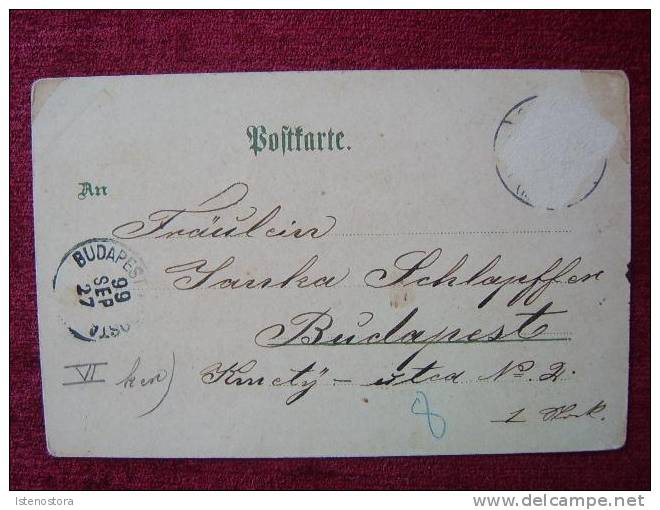 Postkarte.
An
Fräulein
Janka Schlapffer
Budapest
VI ker) Kmety-utca No. 2.
1 Stock.
8
BUDAPEST
99
SEP
27
POSTA
Istenostora
www.delcampe.net